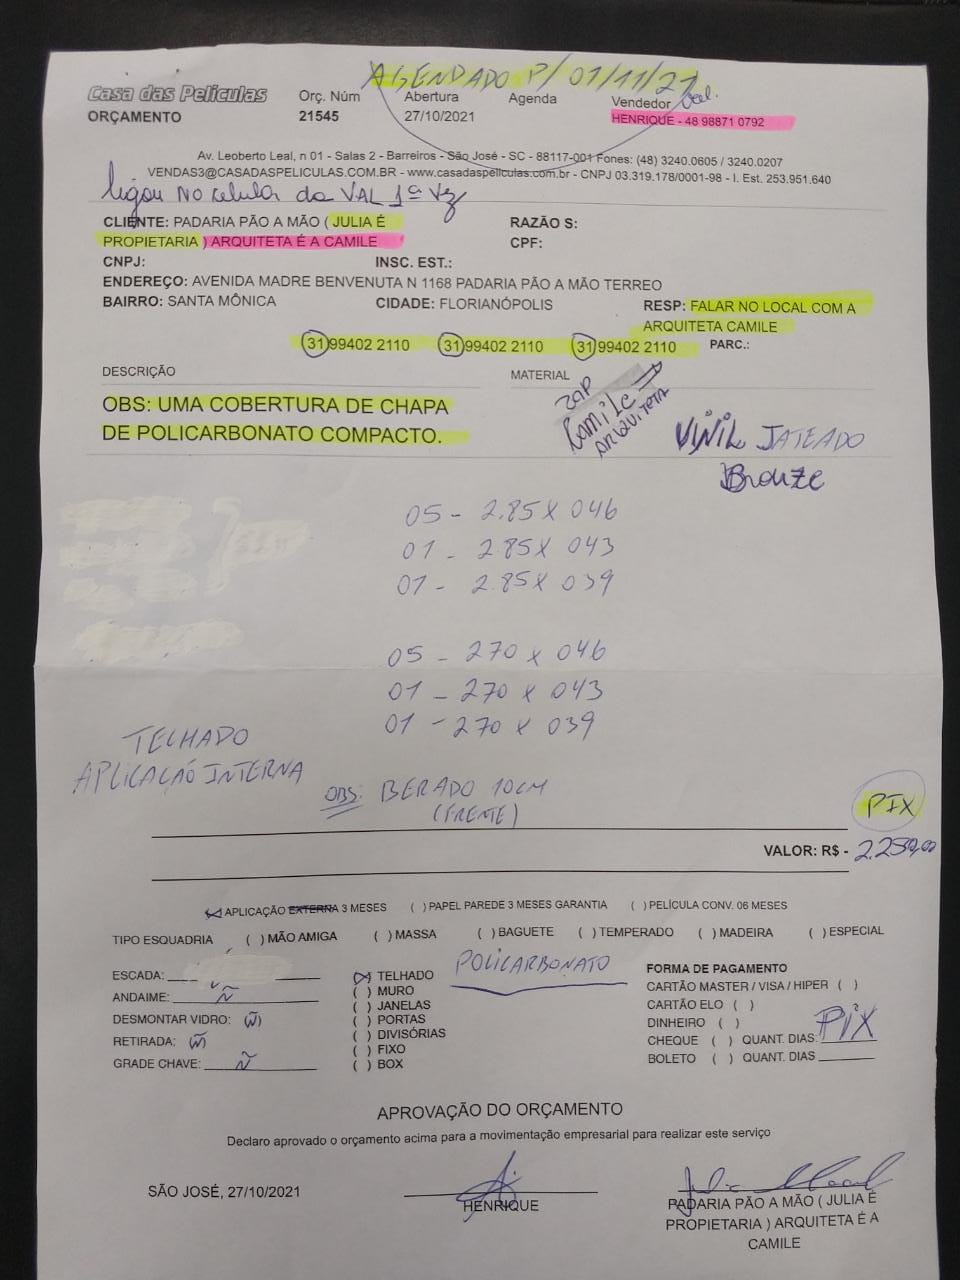 AGENDADO P/ 01/11/21
Casa das Películas
ORÇAMENTO
Orç. Núm
21545
Abertura
27/10/2021
Agenda
Vendedor
HENRIQUE - 48 98871 0792
Av. Leoberto Leal, n 01 - Salas 2 - Barreiros - São José - SC - 88117-001 Fones: (48) 3240.0605 / 3240.0207
VENDAS3@CASADASPELICULAS.COM.BR - www.casadaspeliculas.com.br - CNPJ 03.319.178/0001-98 - I. Est. 253.951.640
ligou NO celular da VAL 1ª Vez
CLIENTE: PADARIA PÃO A MÃO ( JULIA É RAZÃO S:
PROPIETARIA ) ARQUITETA É A CAMILE CPF:
CNPJ: INSC. EST.:
ENDEREÇO: AVENIDA MADRE BENVENUTA N 1168 PADARIA PÃO A MÃO TERREO
BAIRRO: SANTA MÔNICA CIDADE: FLORIANÓPOLIS RESP: FALAR NO LOCAL COM A
ARQUITETA CAMILE
(31)99402 2110 (31)99402 2110 (31)99402 2110 PARC.:
DESCRIÇÃO MATERIAL
ZAP
CAMILE
ARQUITETA
OBS: UMA COBERTURA DE CHAPA
DE POLICARBONATO COMPACTO.
VINIL JATEADO
Bronze
05 - 2.85 X 046
01 - 2.85 X 043
01 - 2.85 X 039
05 - 270 X 046
01 - 270 X 043
01 - 270 X 039
TELHADO
APLICAÇÃO INTERNA
OBS: BERADO 10CM
(FRENTE)
PIX
VALOR: R$ - 2.250,00
APLICAÇÃO EXTERNA 3 MESES ( ) PAPEL PAREDE 3 MESES GARANTIA ( ) PELÍCULA CONV. 06 MESES
TIPO ESQUADRIA ( ) MÃO AMIGA ( ) MASSA ( ) BAGUETE ( ) TEMPERADO ( ) MADEIRA ( ) ESPECIAL
ESCADA:
ANDAIME: Ñ
DESMONTAR VIDRO: (Ñ)
RETIRADA: (Ñ)
GRADE CHAVE: Ñ
(X) TELHADO
( ) MURO
( ) JANELAS
( ) PORTAS
( ) DIVISÓRIAS
( ) FIXO
( ) BOX
POLICARBONATO
FORMA DE PAGAMENTO
CARTÃO MASTER / VISA / HIPER ( )
CARTÃO ELO ( )
DINHEIRO ( )
CHEQUE ( ) QUANT. DIAS: PIX
BOLETO ( ) QUANT. DIAS
APROVAÇÃO DO ORÇAMENTO
Declaro aprovado o orçamento acima para a movimentação empresarial para realizar este serviço
SÃO JOSÉ, 27/10/2021
HENRIQUE
PADARIA PÃO A MÃO ( JULIA É
PROPIETARIA ) ARQUITETA É A
CAMILE